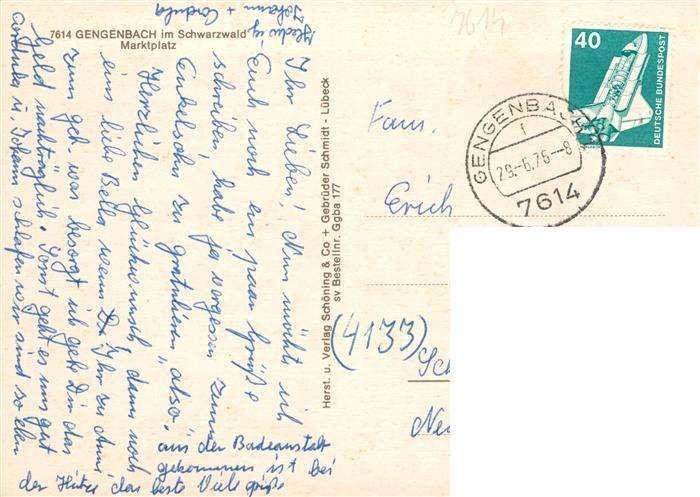 7614 GENGENBACH im Schwarzwald
Marktplatz
Ihr Lieben! Nun möcht ich
Euch noch ein paar Grüße
schreiben, habe ja vergessen zum
Enkelsohn zu gratulieren, also,
Herzlichen Glückwunsch, dann noch
eins liebe Bella wenn Du Ihr zu Anni
zum geb. was besorgt ich gebe Dir das
Geld nachträglich. Sonst geht es uns gut
Cordula u. Johann schlafen wir sind so eben
aus der Badeanstalt
gekommen ist bei
der Hitze das beste Viele grüße
Hedwig
Johann + Cordula
Herst. u. Verlag Schöning & Co + Gebrüder Schmidt - Lübeck
sv Bestellnr. Ggba 177
3614
40
DEUTSCHE BUNDESPOST
GENGENBACH
1
29.-6.76-8
7614
Fam.
Erich
(4133) Sch
Neu